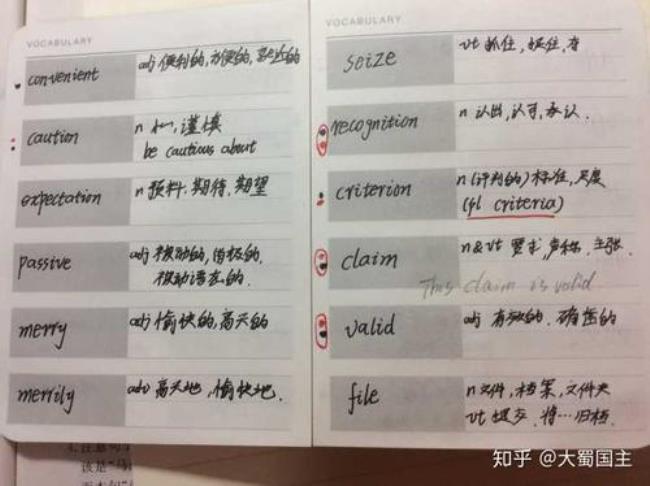 VOCABULARY
convenient adj 便利的,方便的,就近的
caution n 小心,谨慎
be cautious about
expectation n 预料,期待,期望
passive adj 被动的,消极的,
被动语态的.
merry adj 愉快的,高兴的
merrily adv 高兴地,愉快地.
VOCABULARY
seize vt 抓住,捉住,夺
recognition n 认出,认可,承认.
criterion n (评判的)标准,尺度
(pl criteria)
claim n & vt 要求,声称,主张.
This claim is valid.
valid adj 有效的,确凿的
file n 文件,档案,文件夹
vt 提交,将…归档.
知乎 @大蜀国主